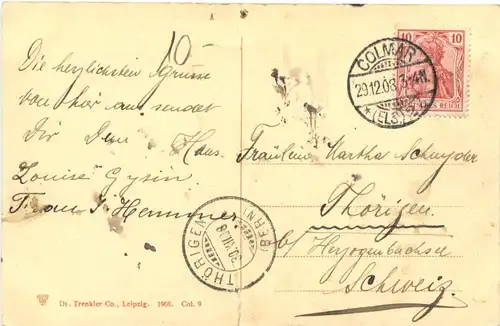 10-
Die herzlichsten Grüsse
von hier aus sendet
Dir Dein Hans
Louise Gysin
Frau J. Hemmer
Fräulein Martha Schnyder
Thörigen
b/ Herzogenbuchsee
Schweiz
10 10
DEUTSCHES REICH
COLMAR
29.12.08
(ELS.)
THÖRIGEN
30.XII.08
(BERN)
Dr. Trenkler Co., Leipzig. 1908. Col. 9